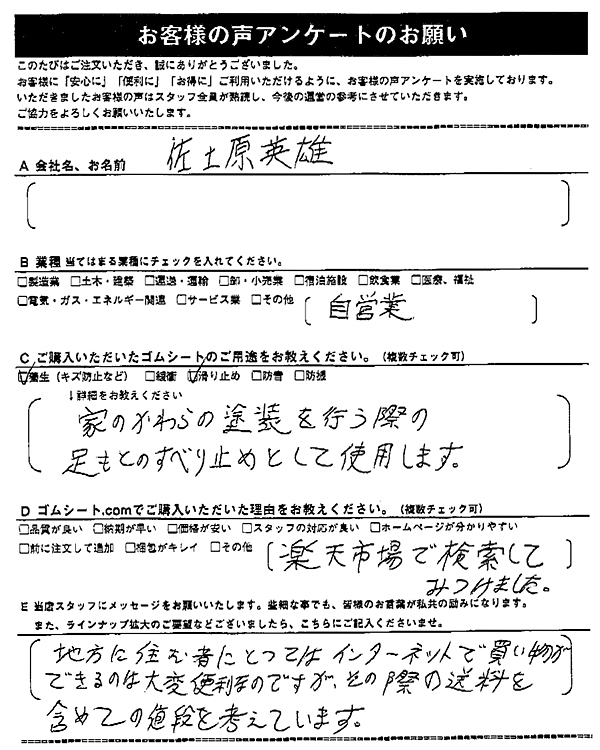 お客様の声アンケートのお願い
このたびはご注文いただき、誠にありがとうございました。
お客様に「安心に」「便利に」「お得に」ご利用いただけるように、お客様の声アンケートを実施しております。
いただきましたお客様の声はスタッフ全員が熟読し、今後の運営の参考にさせていただきます。
ご協力をよろしくお願いいたします。
A 会社名、お名前 佐土原英雄
B 業種 当てはまる業種にチェックを入れてください。
□製造業 □土木・建築 □運送・運輸 □卸・小売業 □宿泊施設 □飲食業 □医療、福祉
□電気・ガス・エネルギー関連 □サービス業 □その他 自営業
C ご購入いただいたゴムシートのご用途をお教えください。(複数チェック可)
☑養生(キズ防止など) □緩衝 ☑滑り止め □防音 □防振
↓詳細をお教えください
家のかわらの塗装を行う際の
足もとのすべり止めとして使用します。
D ゴムシート.comでご購入いただいた理由をお教えください。(複数チェック可)
□品質が良い □納期が早い □価格が安い □スタッフの対応が良い □ホームページが分かりやすい
□前に注文して追加 □梱包がキレイ □その他 楽天市場で検索して
みつけました。
E 当店スタッフにメッセージをお願いいたします。些細な事でも、皆様のお言葉が私共の励みになります。
また、ラインナップ拡大のご要望などございましたら、こちらにご記入くださいませ。
地方に住む者にとってはインターネットで買い物が
できるのは大変便利なのですが、その際の送料を
含めての値段を考えています。